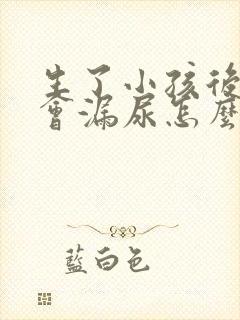 生了小孩後
會漏尿怎麼
藍白色